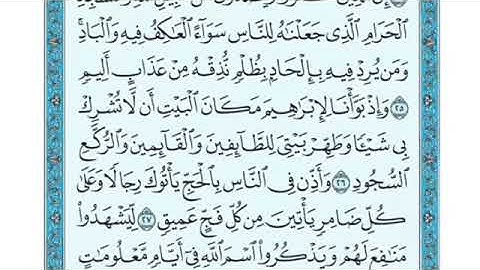 ٱلْحَرَامِ ٱلَّذِى جَعَلْنَٰهُ لِلنَّاسِ سَوَآءً ٱلْعَٰكِفُ فِيهِ وَٱلْبَادِ ۚ
وَمَن يُرِدْ فِيهِ بِإِلْحَادٍۭ بِظُلْمٍ نُّذِقْهُ مِنْ عَذَابٍ أَلِيمٍ
۝٢٥ وَإِذْ بَوَّأْنَا لِإِبْرَٰهِيمَ مَكَانَ ٱلْبَيْتِ أَن لَّا تُشْرِكْ
بِى شَيْـًٔا وَطَهِّرْ بَيْتِىَ لِلطَّآئِفِينَ وَٱلْقَآئِمِينَ وَٱلرُّكَّعِ
ٱلسُّجُودِ ۝٢٦ وَأَذِّن فِى ٱلنَّاسِ بِٱلْحَجِّ يَأْتُوكَ رِجَالًا وَعَلَىٰ
كُلِّ ضَامِرٍ يَأْتِينَ مِن كُلِّ فَجٍّ عَمِيقٍ ۝٢٧ لِّيَشْهَدُوا۟
مَنَٰفِعَ لَهُمْ وَيَذْكُرُوا۟ ٱسْمَ ٱللَّهِ فِىٓ أَيَّامٍ مَّعْلُومَٰتٍ